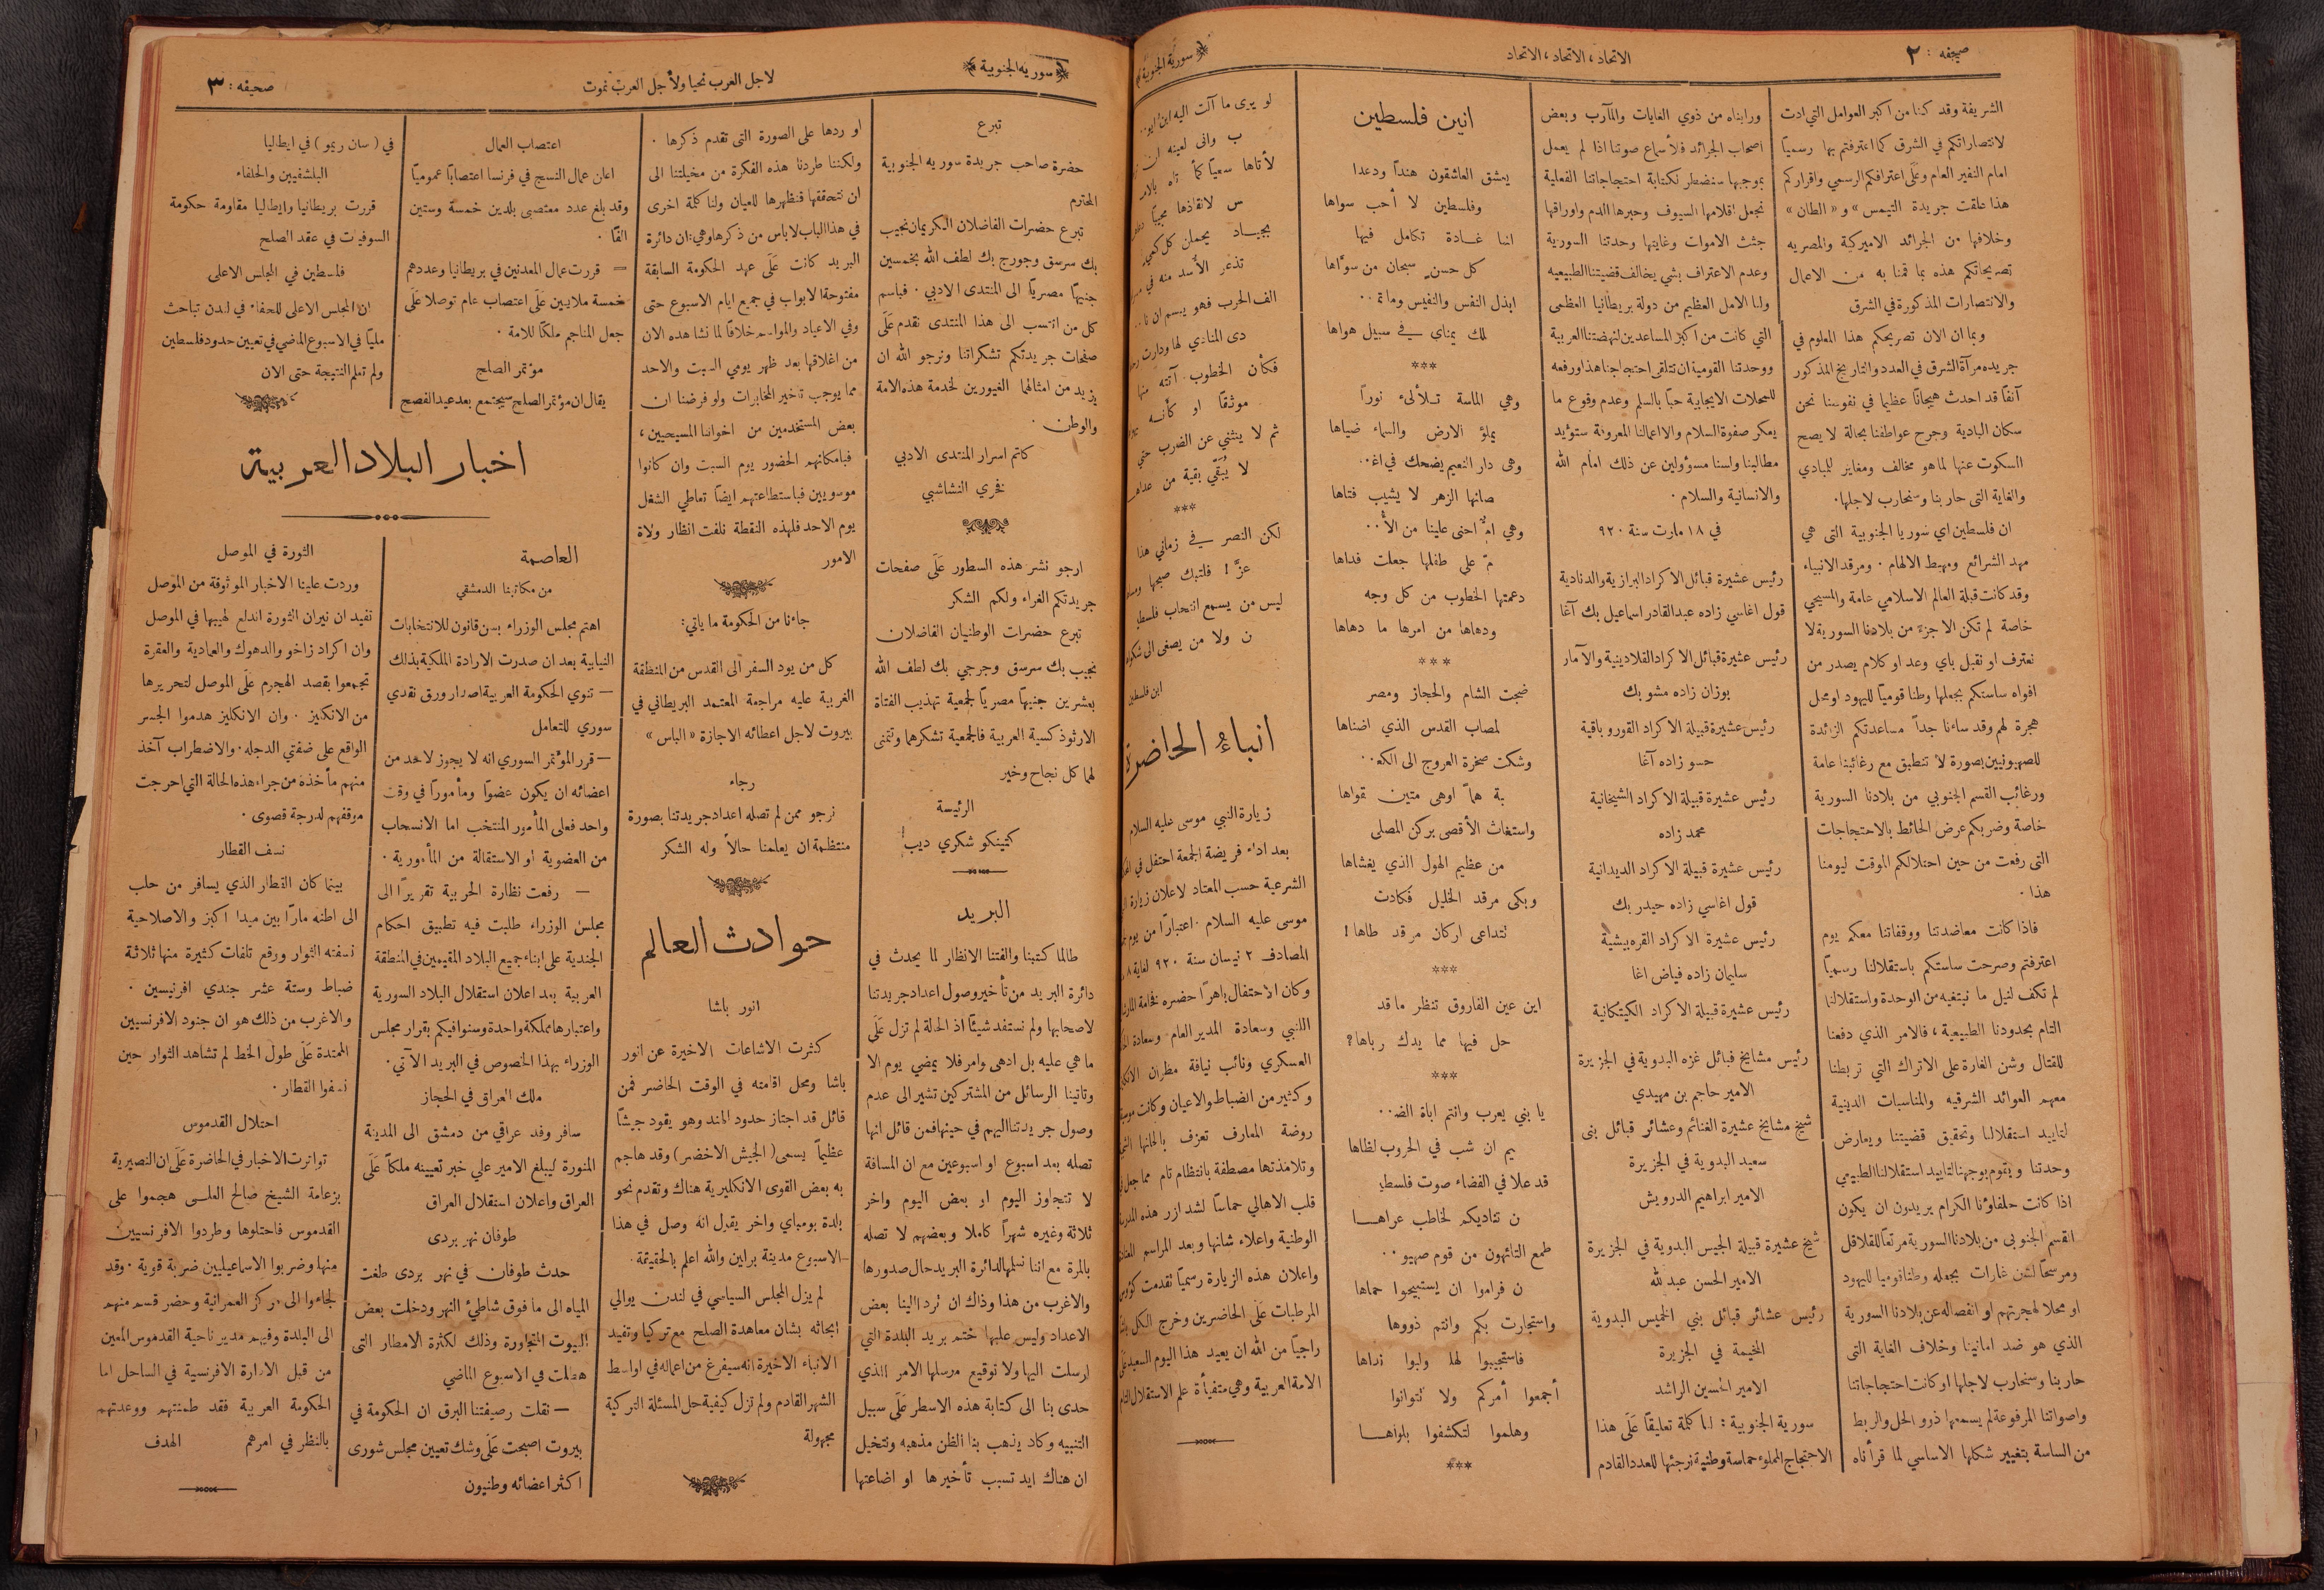 صحيفه : ٢
الاتحاد، الاتحاد، الاتحاد
﴿ سورية الجنوبية ﴾
الشريفة وقد كنا من اكبر العوامل التي ادت
لانتصاراتكم في الشرق كما اعترفتم بها رسمياً
امام النفير العام وعلى اعترافكم الرسمي واقراركم
هذا علقت جريدة التيمس » و « الطان »
وخلافها من الجرائد الاميركية والمصريه
تصريحاتكم هذه بما قمنا به من الاعمال
والانتصارات المذكورة في الشرق
وبما ان الان تصريحكم هذا المعلوم في
جريده مرآة الشرق في العدد والتاريخ المذكور
آنفاً قد احدث هيجاناً عظيما في نفوسنا نحن
سكان البادية وجرح عواطفنا بحالة لا يصح
السكوت عنها لما هو مخالف ومغاير للمبادي
والغاية التى حاربنا وسنحارب لاجلها٠
ان فلسطين اي سوريا الجنوبية التى هي
مهد الشرائع ومهبط الالهام ٠ ومرقد الانبياء
وقد كانت قبلة العالم الاسلامي عامة والمسيحي
خاصة لم تكن الا جزءً من بلادنا السورية لا
نعترف او نقبل باي وعد او كلام يصدر من
افواه ساستكم بجعلها وطنا قومياً لليهود او محل
هجرة لهم وقد ساءنا جداً مساعدتكم الزائدة
للصهيونيين بصورة لا تنطبق مع رغائبنا عامة
ورغائب القسم الجنوبي من بلادنا السورية
خاصة وضربكم عرض الحائط بالاحتجاجات
التى رفعت من حين احتلالكم الموقت ليومنا
هذا ٠
فاذا كانت معاضدتنا ووقفاتنا معكم يوم
اعترفتم وصرحت ساستكم باستقلالنا رسمياً
لم تكف لنيل ما نبتغيه من الوحدة واستقلالنا
التام بحدودنا الطبيعية ، فالامر الذي دفعنا
للقتال وشن الغارة على الاتراك التي تربطنا
معهم العوائد الشرقيه والمناسبات الدينية
لتاييد استقلالنا وتحقيق قضيتنا ويعارض
وحدتنا ويقوم بوجهنا لتاييد استقلالنا الطبيعي
اذا كانت حلفاؤنا الكرام يريدون ان يكون
القسم الجنوبي من بلادنا السورية مرتعاً للقلاقل
ومرسحاً لشن غارات بجعله وطنا قوميا لليهود
او محلا لهجرتهم او انفصاله عن بلادنا السورية
الذي هو ضد امانينا وخلاف الغاية التى
حاربنا وسنحارب لاجلها او كانت احتجاجاتنا
واصواتنا المرفوعة لم يسمعها ذوو الحل والربط
من الساسة بتغيير شكلها الاساسي لما قرأناه
ورايناه من ذوي الغايات والمآرب وبعض
اصحاب الجرائد فلأسماع صوتنا اذا لم يعمل
بموجبها سنضطر لكتابة احتجاجاتنا الفعلية
نجعل اقلامها السيوف وحبرها الدم واوراقها
جثث الاموات وغايتها وحدتنا السورية
وعدم الاعتراف بشي يخالف قضيتنا الطبيعيه
ولنا الامل العظيم من دولة بريطانيا العظمى
التي كانت من اكبر المساعدين لنهضتنا العربية
ووحدتنا القومية ان تتلقى احتجاجنا هذا ورفعه
للمحلات الايجابية حباً بالسلم وعدم وقوع ما
يعكر صفوة السلام والا اعمالنا المعروفة ستؤيد
مطالبنا ولسنا مسؤولين عن ذلك امام الله
والانسانية والسلام ٠
في ١٨ مارت سنة ٩٢٠
رئيس عشيرة قبائل الاكراد البرازية والدنادية
قول اغاسي زاده عبد القادر اسماعيل بك آغا
رئيس عشيرة قبائل الاكراد القلادينية والآمار
بوزان زاده مشو بك
رئيس عشيرة قبيلة الاكراد القورو باقية
حسو زاده آغا
رئيس عشيرة قبيلة الاكراد الشيخانية
محمد زاده
رئيس عشيرة قبيلة الاكراد الديدانية
قول اغاسي زاده حيدر بك
رئيس عشيرة الاكراد القره بيشية
سليمان زاده فياض اغا
رئيس عشيرة قبيلة الاكراد الكيتكانية
رئيس مشايخ قبائل غزه البدوية في الجزيرة
الامير حاجم بن مهيدي
شيخ مشايخ عشيرة الغنائم وعشائر قبائل بنى
سعيد البدوية في الجزيرة
الامير ابراهيم الدرويش
شيخ عشيرة قبيلة الجيس البدوية في الجزيرة
الامير الحسن عبد لله
رئيس عشائر قبائل بني الخميس البدوية
المخيمة في الجزيرة
الامير الحسين الراشد
سورية الجنوبية : لنا كلمة تعليقاً على هذا
الاحتجاج المملوء حماسة وطنية نرجئها للعدد القادم
انين فلسطين
يعشق العاشقون هنداً ودعدا
وفلسطين لا أحب سواها
انها غادة تكامل فيها
كل حسن سبحان من سوّاها
ابذل النفس والنفيس وما تم٠٠
لك يمناي في سبيل هواها
***
وهي الماسة تلألئ نوراً
يملؤ الارض والسماء ضياها
وهى دار النعيم يضحك في اغ٠٠
صانها الزهر لا يشيب فتاها
وهي امٌّ احنى علينا من الأُ٠٠
مّ على طفلها جعلت فداها
دعمتها الخطوب من كل وجه
ودهاها من امرها ما دهاها
***
ضجت الشام والحجاز ومصر
لمصاب القدس الذي اضناها
وشكت صخرة العروج الى الكع٠٠
بة همّاً اوهى متين قواها
واستغاث الأقصى بركن المصلى
من عظيم الهول الذي يغشاها
وبكى مرقد الخليل فكادت
تتداعى اركان مرقد طاها !
***
اين عين الفاروق تنظر ما قد
حل فيها مما يدك رباها ؟
***
يا بني يعرب وانتم اباة الض٠٠
يم ان شب في الحروب لظاها
قد علا في الفضاء صوت فلسطي
ن تناديكم لخاطب عراها
طمع التائهون من قوم صهيو٠٠
ن فراموا ان يستبيحوا حماها
واستجارت بكم وانتم ذووها
فاستجيبوا لها ولبوا نداها
أجمعوا أمركم ولا تتوانوا
وهلموا لتكشفوا بلواها
***
لو يرى ما آلت اليه ابن ايو٠٠
ب وانى لعينه ان
لأتاها سعياً كما تاه بالامـ
س لانقاذها مجيباً
بجياد يحملن كل كمي
تذعر الأسد منه في
الف الحرب فهو يبسم ان نا٠٠
دى المنادي لها ودارت
فكأن الخطوب آتته منها
موثقاً او كأنه
ثم لا ينثني عن الضرب حتى
لا يُبَقّي بقية من عداها
***
لكن النصر في زماني هذا
عزَّ ! فلتبك صبحها ومساها
ليس من يسمع انتحاب فلسطي
ن ولا من يصغى الى شكواها
ابن فلسطين
انباء الحاضرة
زيارة النبي موسى عليه السلام
بعد اداء فريضة الجمعة احتفل في
الشرعية حسب المعتاد لاعلان زيارة
موسى عليه السلام ٠ اعتباراً من يوم
المصادف ٢ نيسان سنة ٩٢٠ لغاية ٨
وكان الاحتفال باهراً حضره فخامة
اللنبي وسعادة المدير العام ٠ وسعادة
العسكري ونائب نيافة مطران
وكثير من الضباط والاعيان وكانت موسيقى
روضة المعارف تعزف بالحانها
وتلامذتها مصطفة بانتظام تام مما جعل
قلب الاهالي حماساً لشد ازر هذه المدرسة
الوطنية واعلاء شانها وبعد المراسم
واعلان هذه الزيارة رسمياً تقدمت كؤوس
المرطبات على الحاضرين وخرج الكل
راجياً من الله ان يعيد هذا اليوم السعيد على
الامة العربية وهي متفيأة علم الاستقلال التام
﴿ سوريه الجنوبية ﴾
لاجل العرب نحيا ولأجل العرب نموت
صحيفه : ٣
تبرع
حضرة صاحب جريدة سوريه الجنوبية
المحترم
تبرع حضرات الفاضلان الكريمان نجيب
بك سرسق وجورج بك لطف الله بخمسين
جنيهاً مصرياً الى المنتدى الادبي ٠ فباسم
كل من انتسب الى هذا المنتدى نقدم على
صفحات جريدتكم تشكراتنا ونرجو الله ان
يزيد من امثالهما الغيورين لخدمة هذه الامة
والوطن ٠
كاتم اسرار المنتدى الادبي
فخري النشاشبي
ارجو نشر هذه السطور على صفحات
جريدتكم الغراء ولكم الشكر
تبرع حضرات الوطنيان الفاضلان
نجيب بك سرسق وجرجي بك لطف الله
بعشرين جنيهاً مصرياً لجمعية تهذيب الفتاة
الارثوذكسية العربية فالجمعية تشكرهما وتتمنى
لهما كل نجاح وخير
الرئيسة
كتينكو شكري ديب
البريد
طالما كتبنا والفتنا الانظار لما يحدث في
دائرة البريد من تأخير وصول اعداد جريدتنا
لاصحابها ولم نستفد شيئاً اذ الحالة لم تزل على
ما هي عليه بل ادهى وامر فلا يمضي يوم الا
وتاتينا الرسائل من المشتركين تشير الى عدم
وصول جريدتنا اليهم في حينها فمن قائل انها
تصله بعد اسبوع او اسبوعين مع ان المسافة
لا تتجاوز اليوم او بعض اليوم واخر
ثلاثة وغيره شهراً كاملا وبعضهم لا تصله
بالمرة مع اننا نسلمها لدائرة البريد حال صدورها
والاغرب من هذا وذاك ان ترد الينا بعض
الاعداد وليس عليها ختم بريد البلدة التي
ارسلت اليها ولا توقيع مرسلها الامر الذي
حدى بنا الى كتابة هذه الاسطر على سبيل
التنبيه وكاد يذهب بنا الظن مذهبه ونتخيل
ان هناك ايد تسبب تأخيرها او اضاعتها
او ردها على الصورة التى تقدم ذكرها ٠
ولكننا طردنا هذه الفكرة من مخيلتنا الى
ان نتحققها فنظهرها للعيان ولنا كلمة اخرى
في هذا الباب لا باس من ذكرها وهي : ان دائرة
البريد كانت على عهد الحكومة السابقة
مفتوحة الابواب في جميع ايام الاسبوع حتى
وفي الاعياد والمواسم خلافاً لما نشاهده الان
من اغلاقها بعد ظهر يومي السبت والاحد
مما يوجب تاخير المخابرات ولو فرضنا ان
بعض المستخدمين من اخواننا المسيحيين ،
فبامكانهم الحضور يوم السبت وان كانوا
موسويين فباستطاعتهم ايضاً تعاطي الشغل
يوم الاحد فلهذه النقطة نلفت انظار ولاة
الامور
جاءنا من الحكومة ما ياتي :
كل من يود السفر الى القدس من المنطقة
الغربية عليه مراجعة المعتمد البريطاني في
بيروت لاجل اعطائه الاجازة « الباس »
رجاء
نرجو ممن لم تصله اعداد جريدتنا بصورة
منتظمة ان يعلمنا حالاً وله الشكر
حوادث العالم
انور باشا
كثرت الاشاعات الاخيرة عن انور
باشا ومحل اقامته في الوقت الحاضر فمن
قائل قد اجتاز حدود الهند وهو يقود جيشاً
عظيماً يسمى ( الجيش الاخضر ) وقد هاجم
به بعض القوى الانكليزية هناك وتقدم نحو
بلدة بومباي واخر يقول انه وصل في هذا
الاسبوع مدينة برلين والله اعلم بالحقيقة ٠
لم يزل المجلس السياسي في لندن يوالي
ابحاثه بشان معاهدة الصلح مع تركيا وتفيد
الانباء الاخيرة انه سيفرغ من اعماله في اواسط
الشهر القادم ولم تزل كيفية حل المسئلة التركية
مجهولة
اعتصاب العمال
اعلن عمال النسج في فرنسا اعتصاباً عمومياً
وقد بلغ عدد معتصبى بلدين خمسة وستين
الفاً ٠
= قررت عمال المعدنين في بريطانيا وعددهم
خمسة ملايين على اعتصاب عام توصلا على
جعل المناجم ملكاً للامة ٠
مؤتمر الصلح
يقال ان مؤتمر الصلح سيجتمع بعد عيد الفصح
في ( سان ريمو ) في ايطاليا
البلشفيين والحلفاء
قررت بريطانيا وايطاليا مقاومة حكومة
السوفيت في عقد الصلح
فلسطين في المجلس الاعلى
ان المجلس الاعلى للحلفاء في لندن تباحث
ملياً في الاسبوع الماضي في تعيين حدود فلسطين
ولم تعلم النتيجة حتى الان
اخبار البلاد العربية
العاصمة
من مكاتبنا الدمشقي
اهتم مجلس الوزراء بسن قانون للانتخابات
النيابية بعد ان صدرت الارادة الملكية بذلك
— تنوي الحكومة العربية اصدار ورق نقدي
سوري للتعامل
— قرر المؤتمر السوري انه لا يجوز لاحد من
اعضائه ان يكون عضواً ومأموراً في وقت
واحد فعلى المأمور المنتخب اما الانسحاب
من العضوية او الاستقالة من المأمورية ٠
— رفعت نظارة الحربية تقريراً الى
مجلس الوزراء طلبت فيه تطبيق احكام
الجندية على ابناء جميع البلاد المقيمين في المنطقة
العربية بعد اعلان استقلال البلاد السورية
واعتبارها مملكة واحدة وسنوافيكم بقرار مجلس
الوزراء بهذا الخصوص في البريد الآتي ٠
ملك العراق في الحجاز
سافر وفد عراقي من دمشق الى المدينة
المنورة ليبلغ الامير علي خبر تعيينه ملكاً على
العراق واعلان استقلال العراق
طوفان نهر بردى
حدث طوفان في نهر بردى طغت
المياه الى ما فوق شاطئ النهر ودخلت بعض
البيوت المتجاورة وذلك لكثرة الامطار التى
هطلت في الاسبوع الماضي
— نقلت رصيفتنا البرق ان الحكومة في
بيروت اصبحت على وشك تعيين مجلس شورى
اكثر اعضائه وطنيون
الثورة في الموصل
وردت علينا الاخبار الموثوقة من الموصل
تفيد ان نيران الثورة اندلع لهيبها في الموصل
وان اكراد زاخو والدهوك والعمادية والعقرة
تجمعوا بقصد الهجوم على الموصل لتحريرها
من الانكليز ٠ وان الانكليز هدموا الجسر
الواقع على ضفتي الدجله ٠ والاضطراب آخذ
منهم مأخذه من جراء هذه الحالة التي احرجت
موقفهم لدرجة قصوى ٠
نسف القطار
بينما كان القطار الذي يسافر من حلب
الى اطنه ماراً بين ميدا اكبز والاصلاحية
نسفته الثوار ووقع تلفات كثيرة منها ثلاثة
ضباط وستة عشر جندي افرنيسين ٠
والاغرب من ذلك هو ان جنود الافرنسيين
الممتدة على طول الخط لم تشاهد الثوار حين
نسفوا القطار ٠
احتلال القدموس
تواترت الاخبار في الحاضرة على ان النصيرية
بزعامة الشيخ صالح العلى هجموا على
القدموس فاحتلوها وطردوا الافرنسيين
منها وضربوا الاسماعيليين ضربة قوية ٠ وقد
لجاءوا الى مركز العمرانية وحضر قسم منهم
الى البلدة وفيهم مدير ناحية القدموس المعين
من قبل الادارة الافرنسية في الساحل اما
الحكومة العربية فقد طمنتهم ووعدتهم
بالنظر في امرهم الهدف